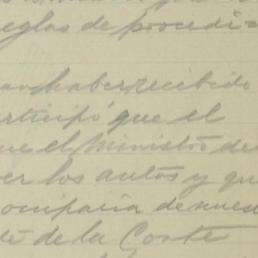 reglas de procedi=
haber recibido
participó que el
que el Ministro de
ver los autos y que
ocuparía de nues
de la Corte